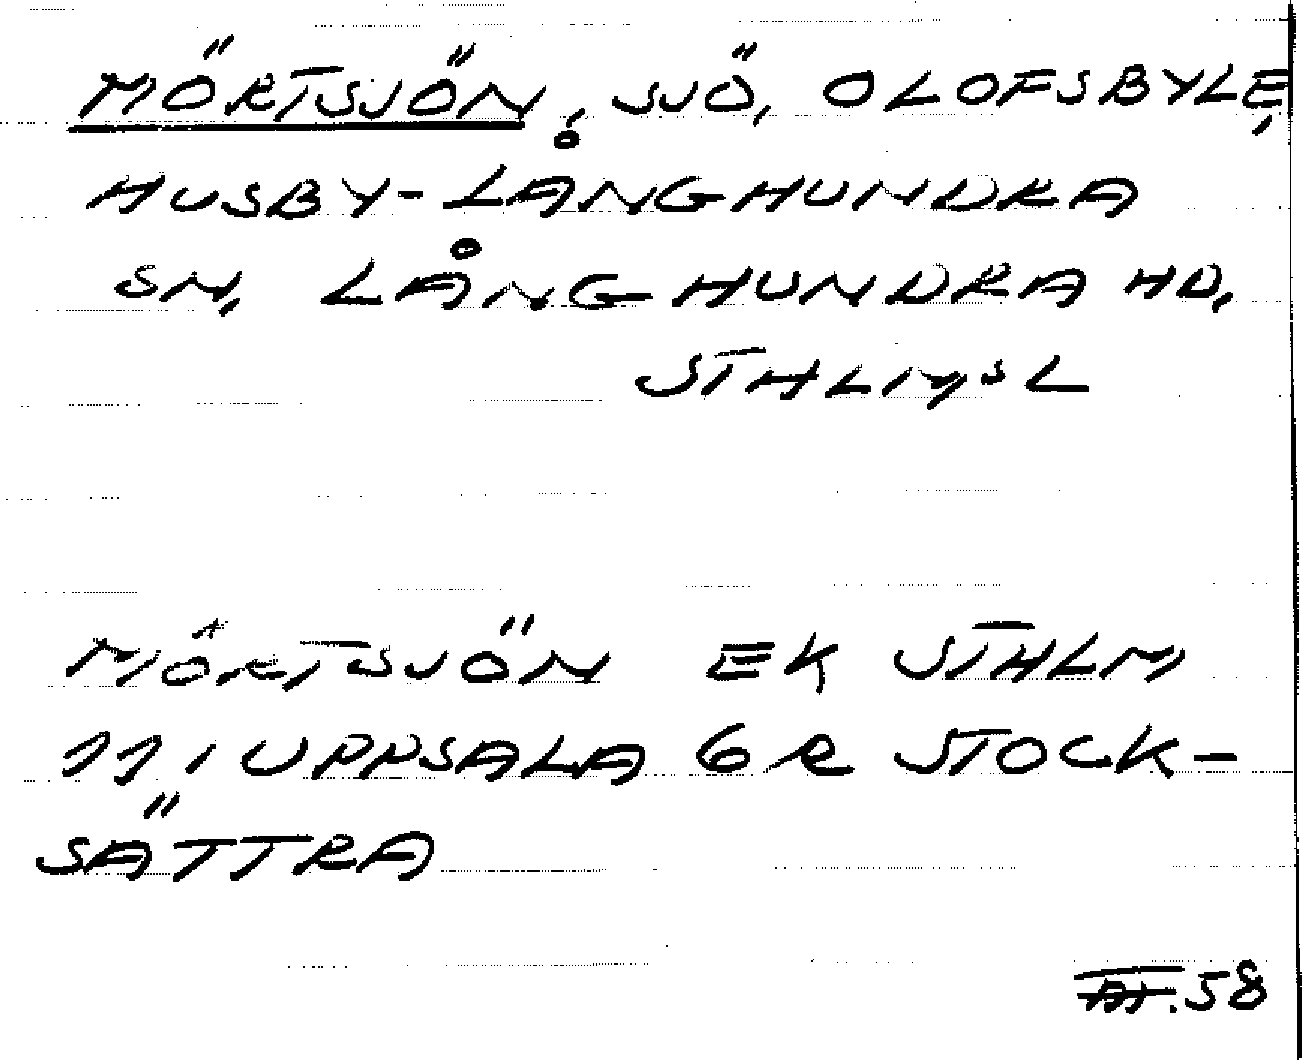 MÖRTSJÖN, SJÖ, OLOFSBYLE,
HUSBY-LÅNGHUNDRA
SN, LÅNGHUNDRA HD,
STHLMS L
MÖRTSJÖN EK STHLM
11, UPPSALA 6 R STOCK-
SÄTTRA
58